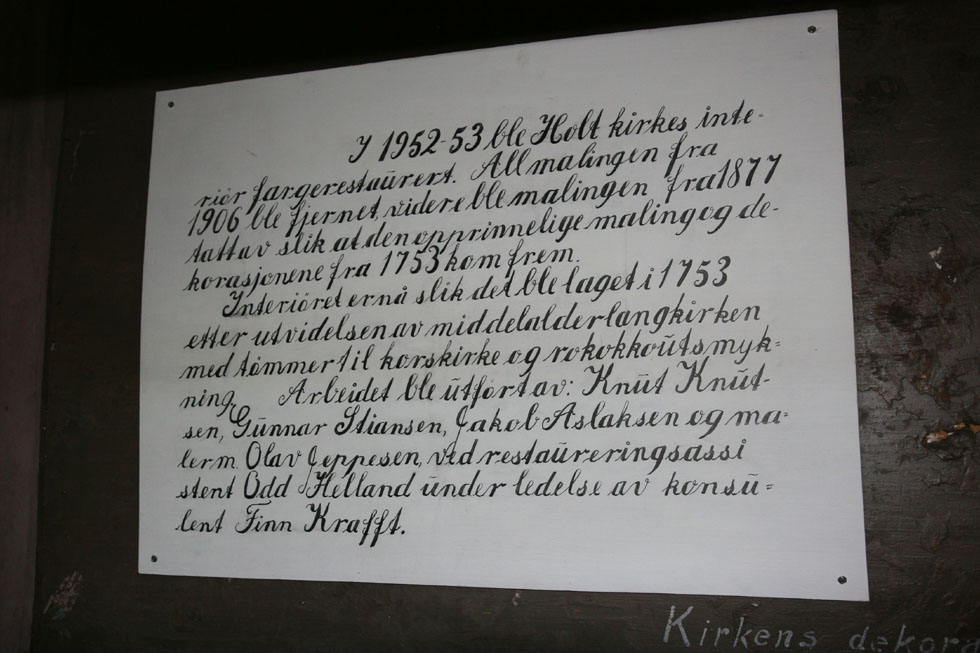 I 1952-53 ble Holt kirkes inte-
riör fargerestaurert. All malingen fra
1906 ble fjernet, videre ble malingen fra 1877
tatt av slik at den opprinnelige maling og de-
korasjonene fra 1753 kom frem.
Interiöret er nå slik det ble laget i 1753
etter utvidelsen av middelalderlangkirken
med tømmer til korskirke og rokokkoutsmyk-
ning. Arbeidet ble utført av: Knut Knut-
sen, Gunnar Stiansen, Jakob Aslaksen og ma-
lerm. Olav Jeppesen, ved restaureringsassi
stent Odd Helland under ledelse av konsu-
lent Finn Krafft.
Kirkens dekora